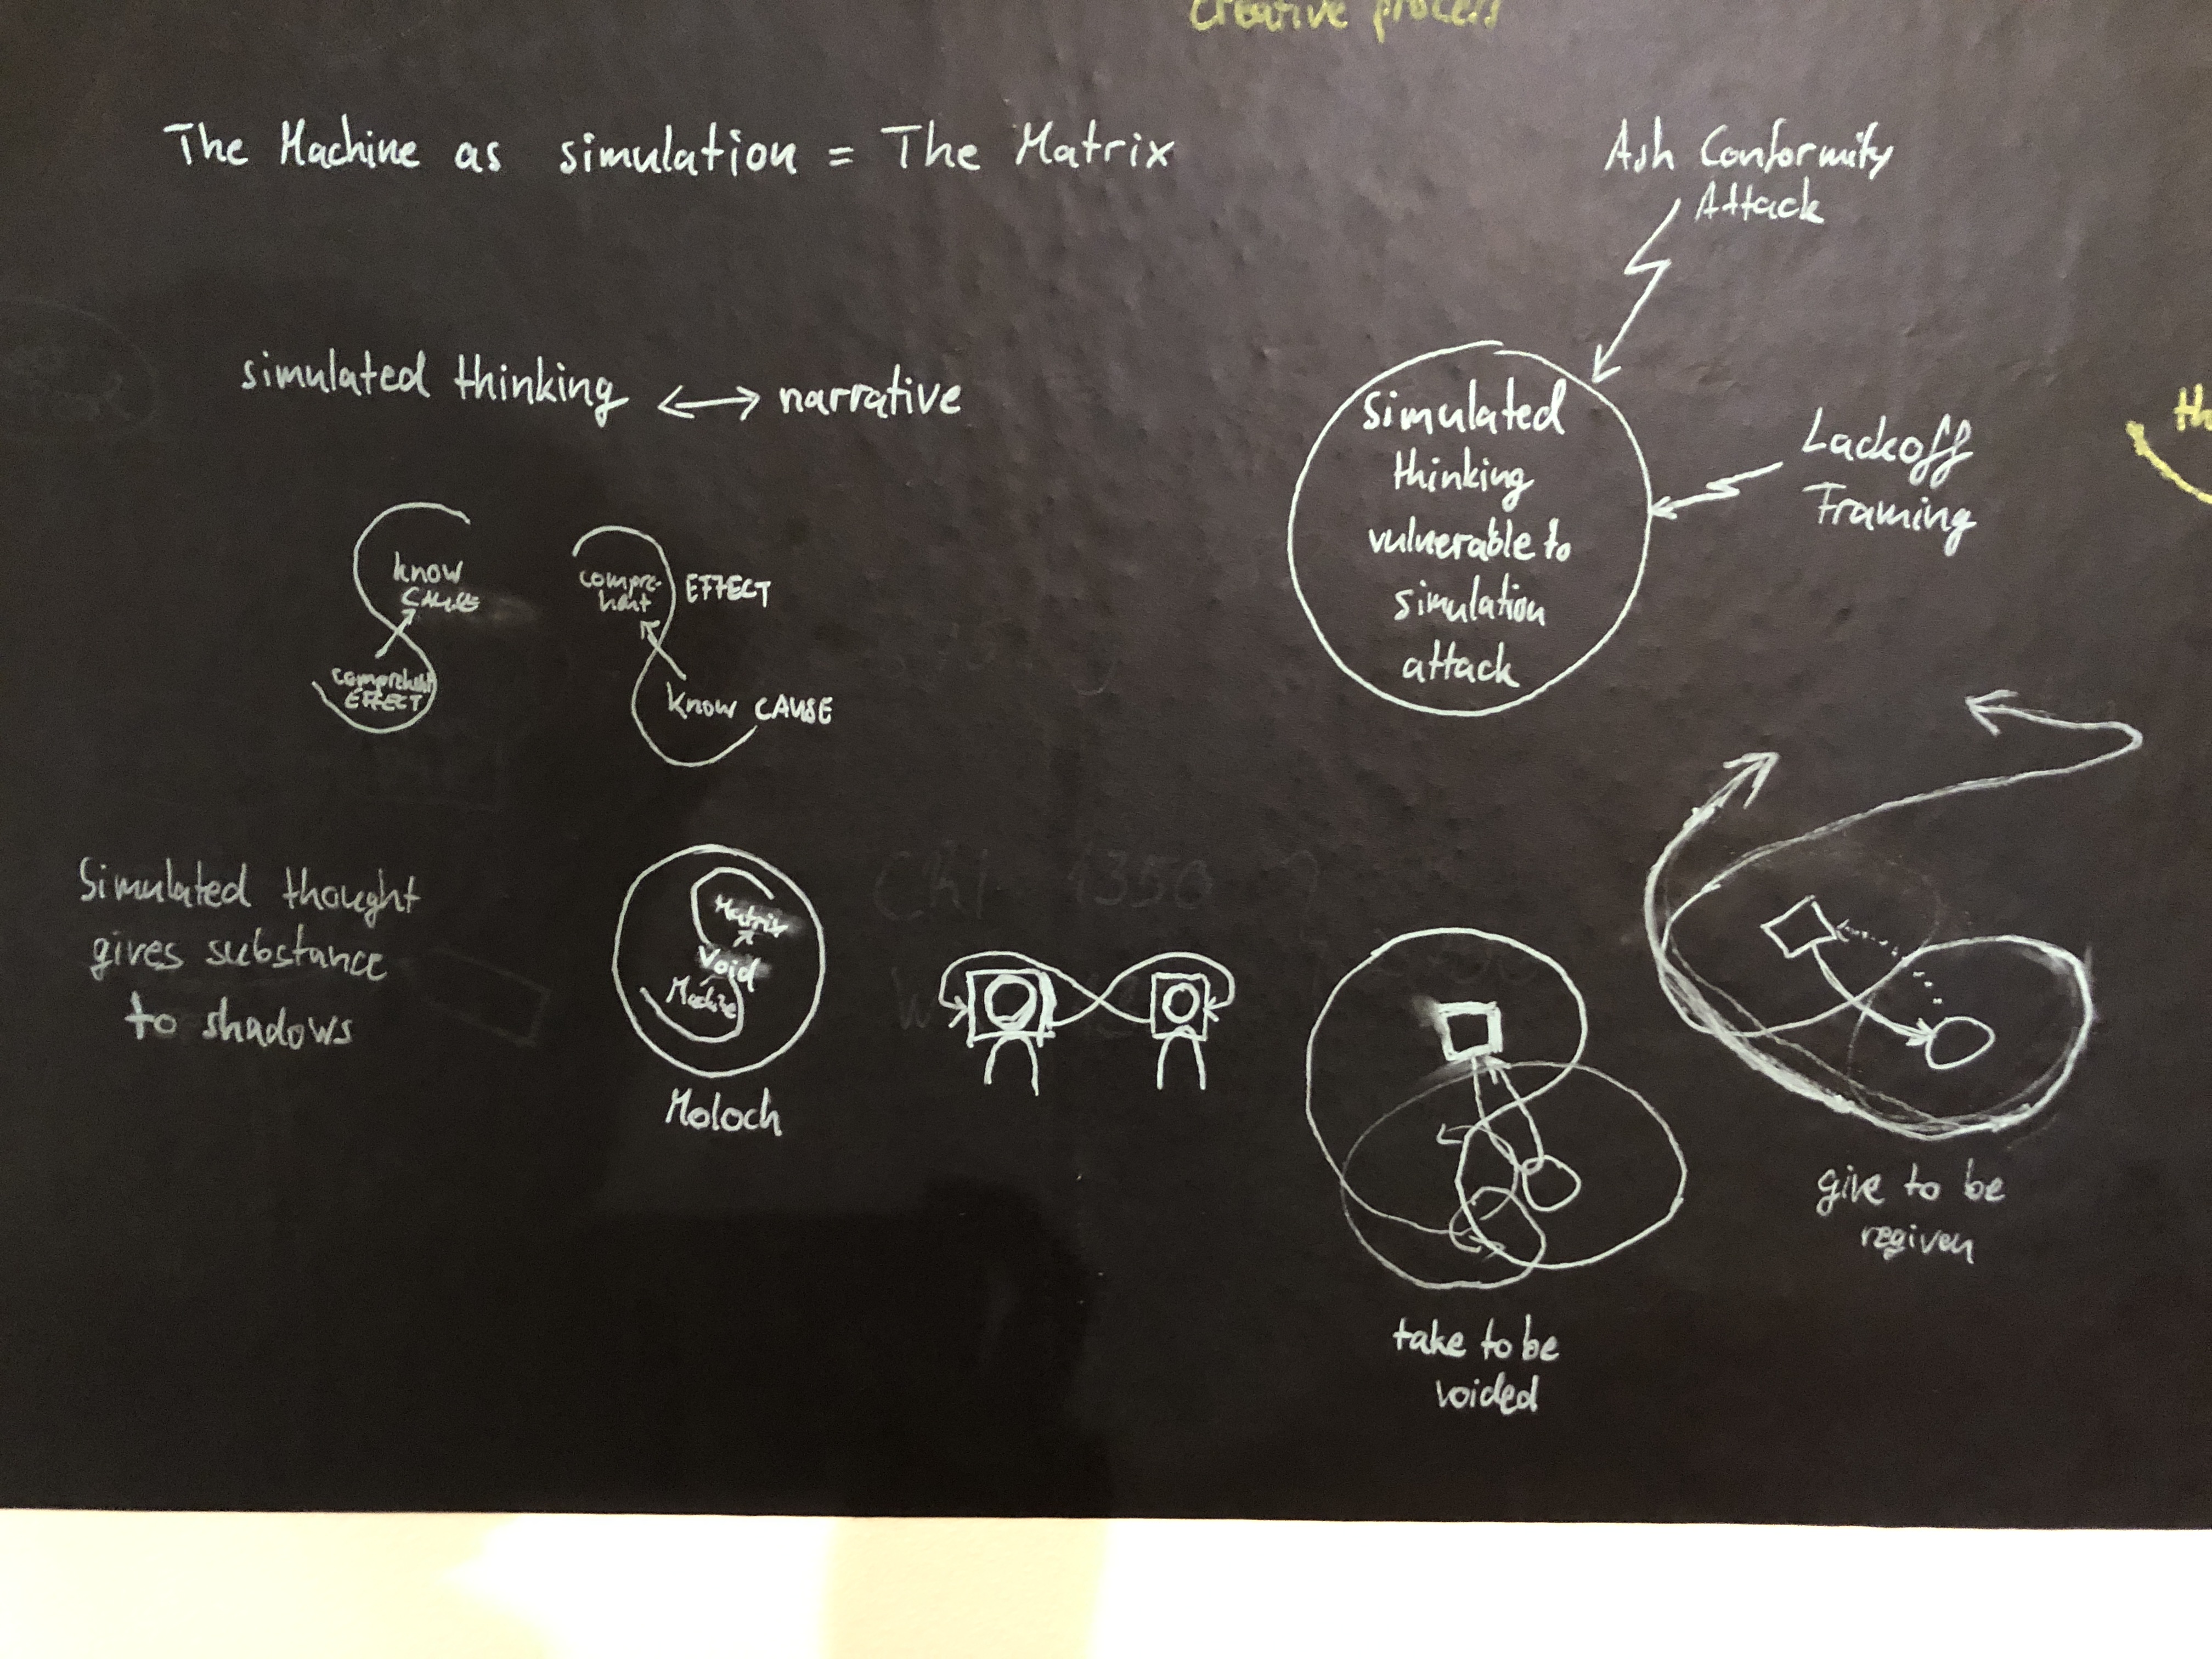 creative process
The Machine as simulation = The Matrix
Ash Conformity
Attack
simulated thinking ↔ narrative
simulated
thinking
vulnerable to
simulation
attack
Lackoff
Framing
th
know
CAUSE
comprehent
EFFECT
compre-
hent
EFFECT
know CAUSE
Simulated thought
gives substance
to shadows
Matrix
Void
Machine
Moloch
1350
take to be
voided
give to be
regiven